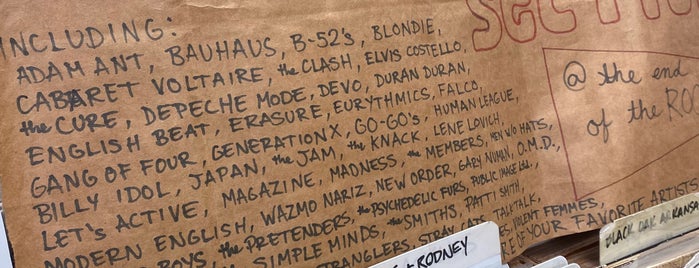 INCLUDING:
ADAM ANT, BAUHAUS, B-52's, BLONDIE,
CABARET VOLTAIRE, the CLASH, ELVIS COSTELLO,
the CURE, DEPECHE MODE, DEVO, DURAN DURAN,
ENGLISH BEAT, ERASURE, EURYTHMICS, FALCO,
GANG OF FOUR, GENERATION X, GO-GO's, HUMAN LEAGUE,
BILLY IDOL, JAPAN, the JAM, the KNACK, LENE LOVICH,
LET'S ACTIVE, MAGAZINE, MADNESS, the MEMBERS, MEN W/O HATS,
MODERN ENGLISH, WAZMO NARIZ, NEW ORDER, GARY NUMAN, O.M.D.,
BOYS, the PRETENDERS, the PSYCHEDELIC FURS, PUBLIC IMAGE Ltd.,
SIMPLE MINDS, the SMITHS, PATTI SMITH,
STRANGLERS, STRAY CATS, TALK TALK,
VIOLENT FEMMES,
OF YOUR FAVORITE ARTISTS
@ the end
of the
RODNEY
BLACK OAK ARKANSAS